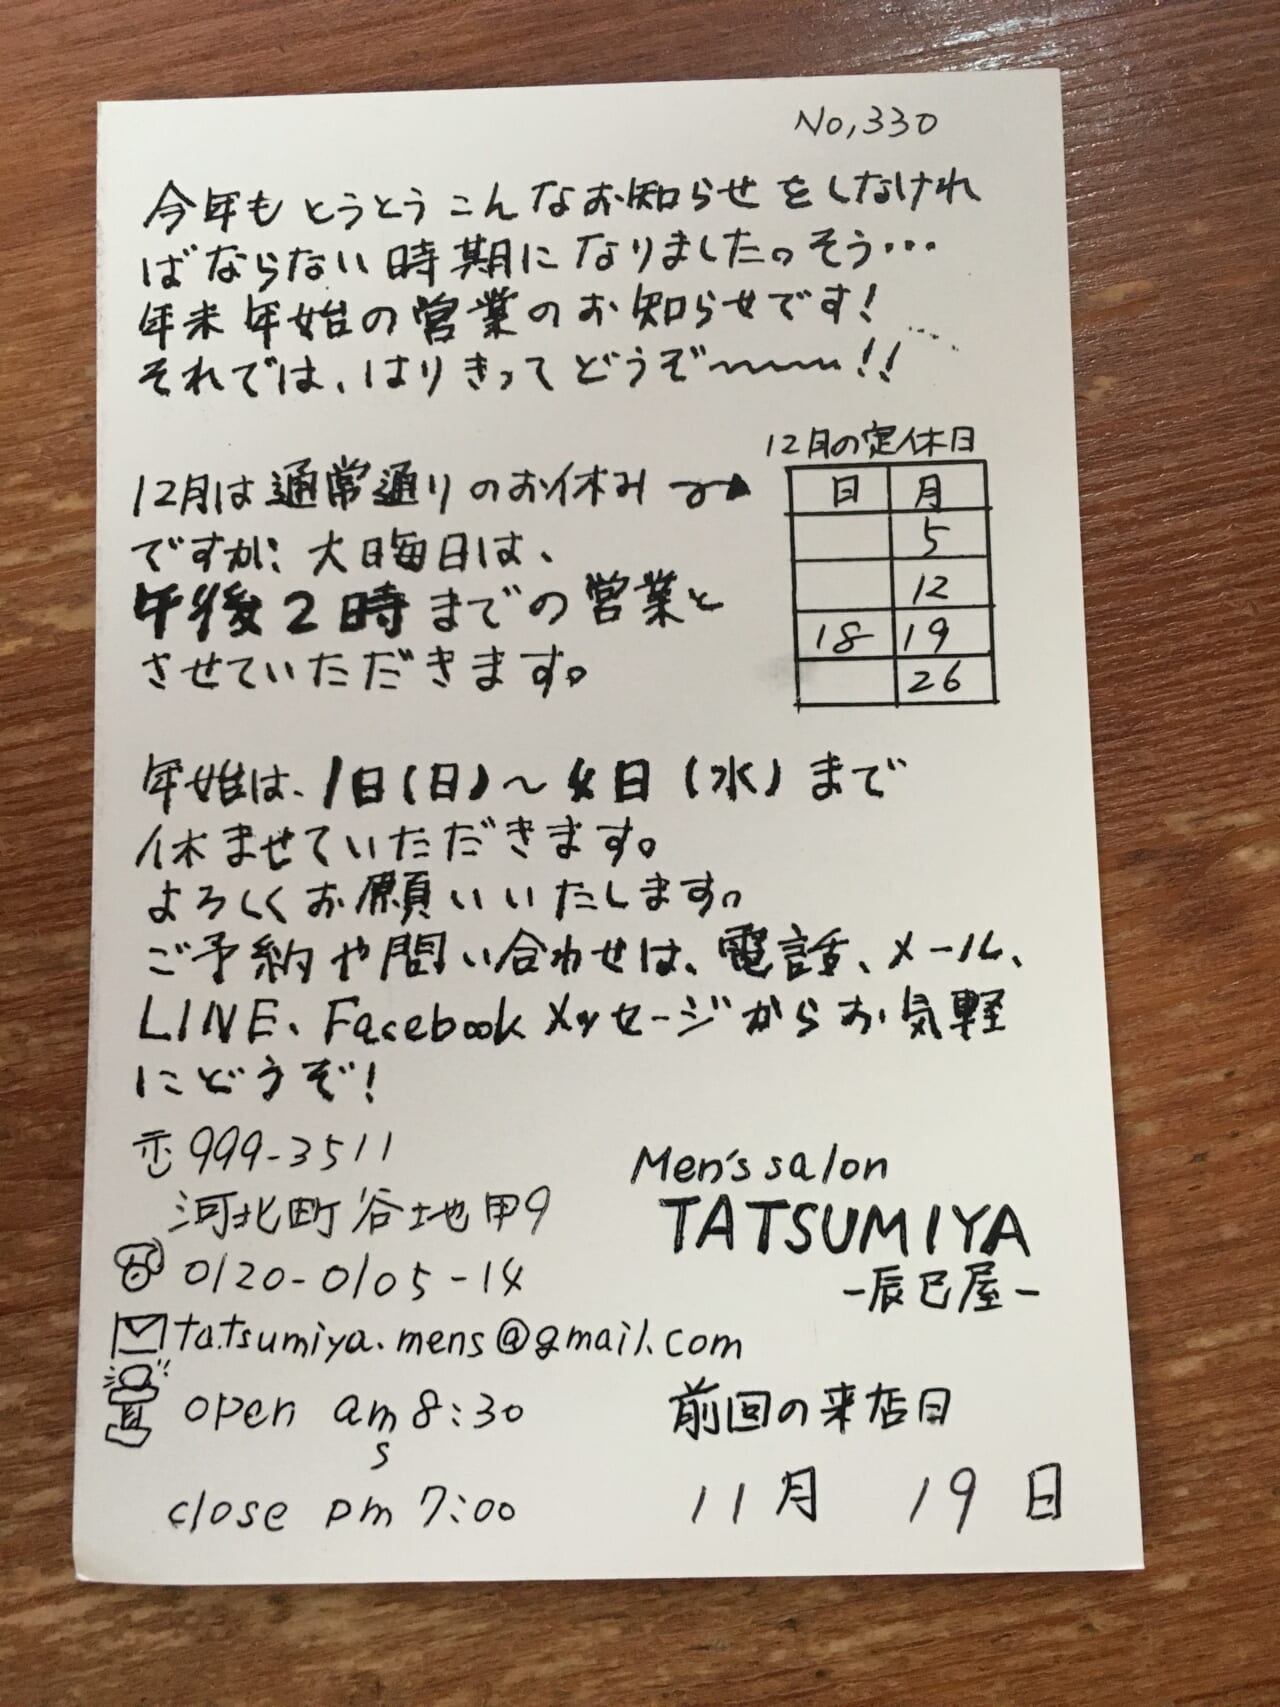 No,330
今年もとうとうこんなお知らせをしなけれ
ばならない時期になりました。そう…
年末年始の営業のお知らせです!
それでは、はりきってどうぞ〜〜〜!!
12月は通常通りのお休み
ですが、大晦日は、
午後2時までの営業と
させていただきます。
12月の定休日
日 月
5
12
18 19
26
年始は、1日(日)〜4日(水)まで
休ませていただきます。
よろしくお願いいたします。
ご予約や問い合わせは、電話、メール、
LINE、Facebookメッセージからお気軽
にどうぞ!
〒999-3511
河北町谷地甲9
0120-0105-14
tatsumiya.mens@gmail.com
open am 8:30
s
close pm 7:00
Men's salon
TATSUMIYA
-辰巳屋-
前回の来店日
11月 19日